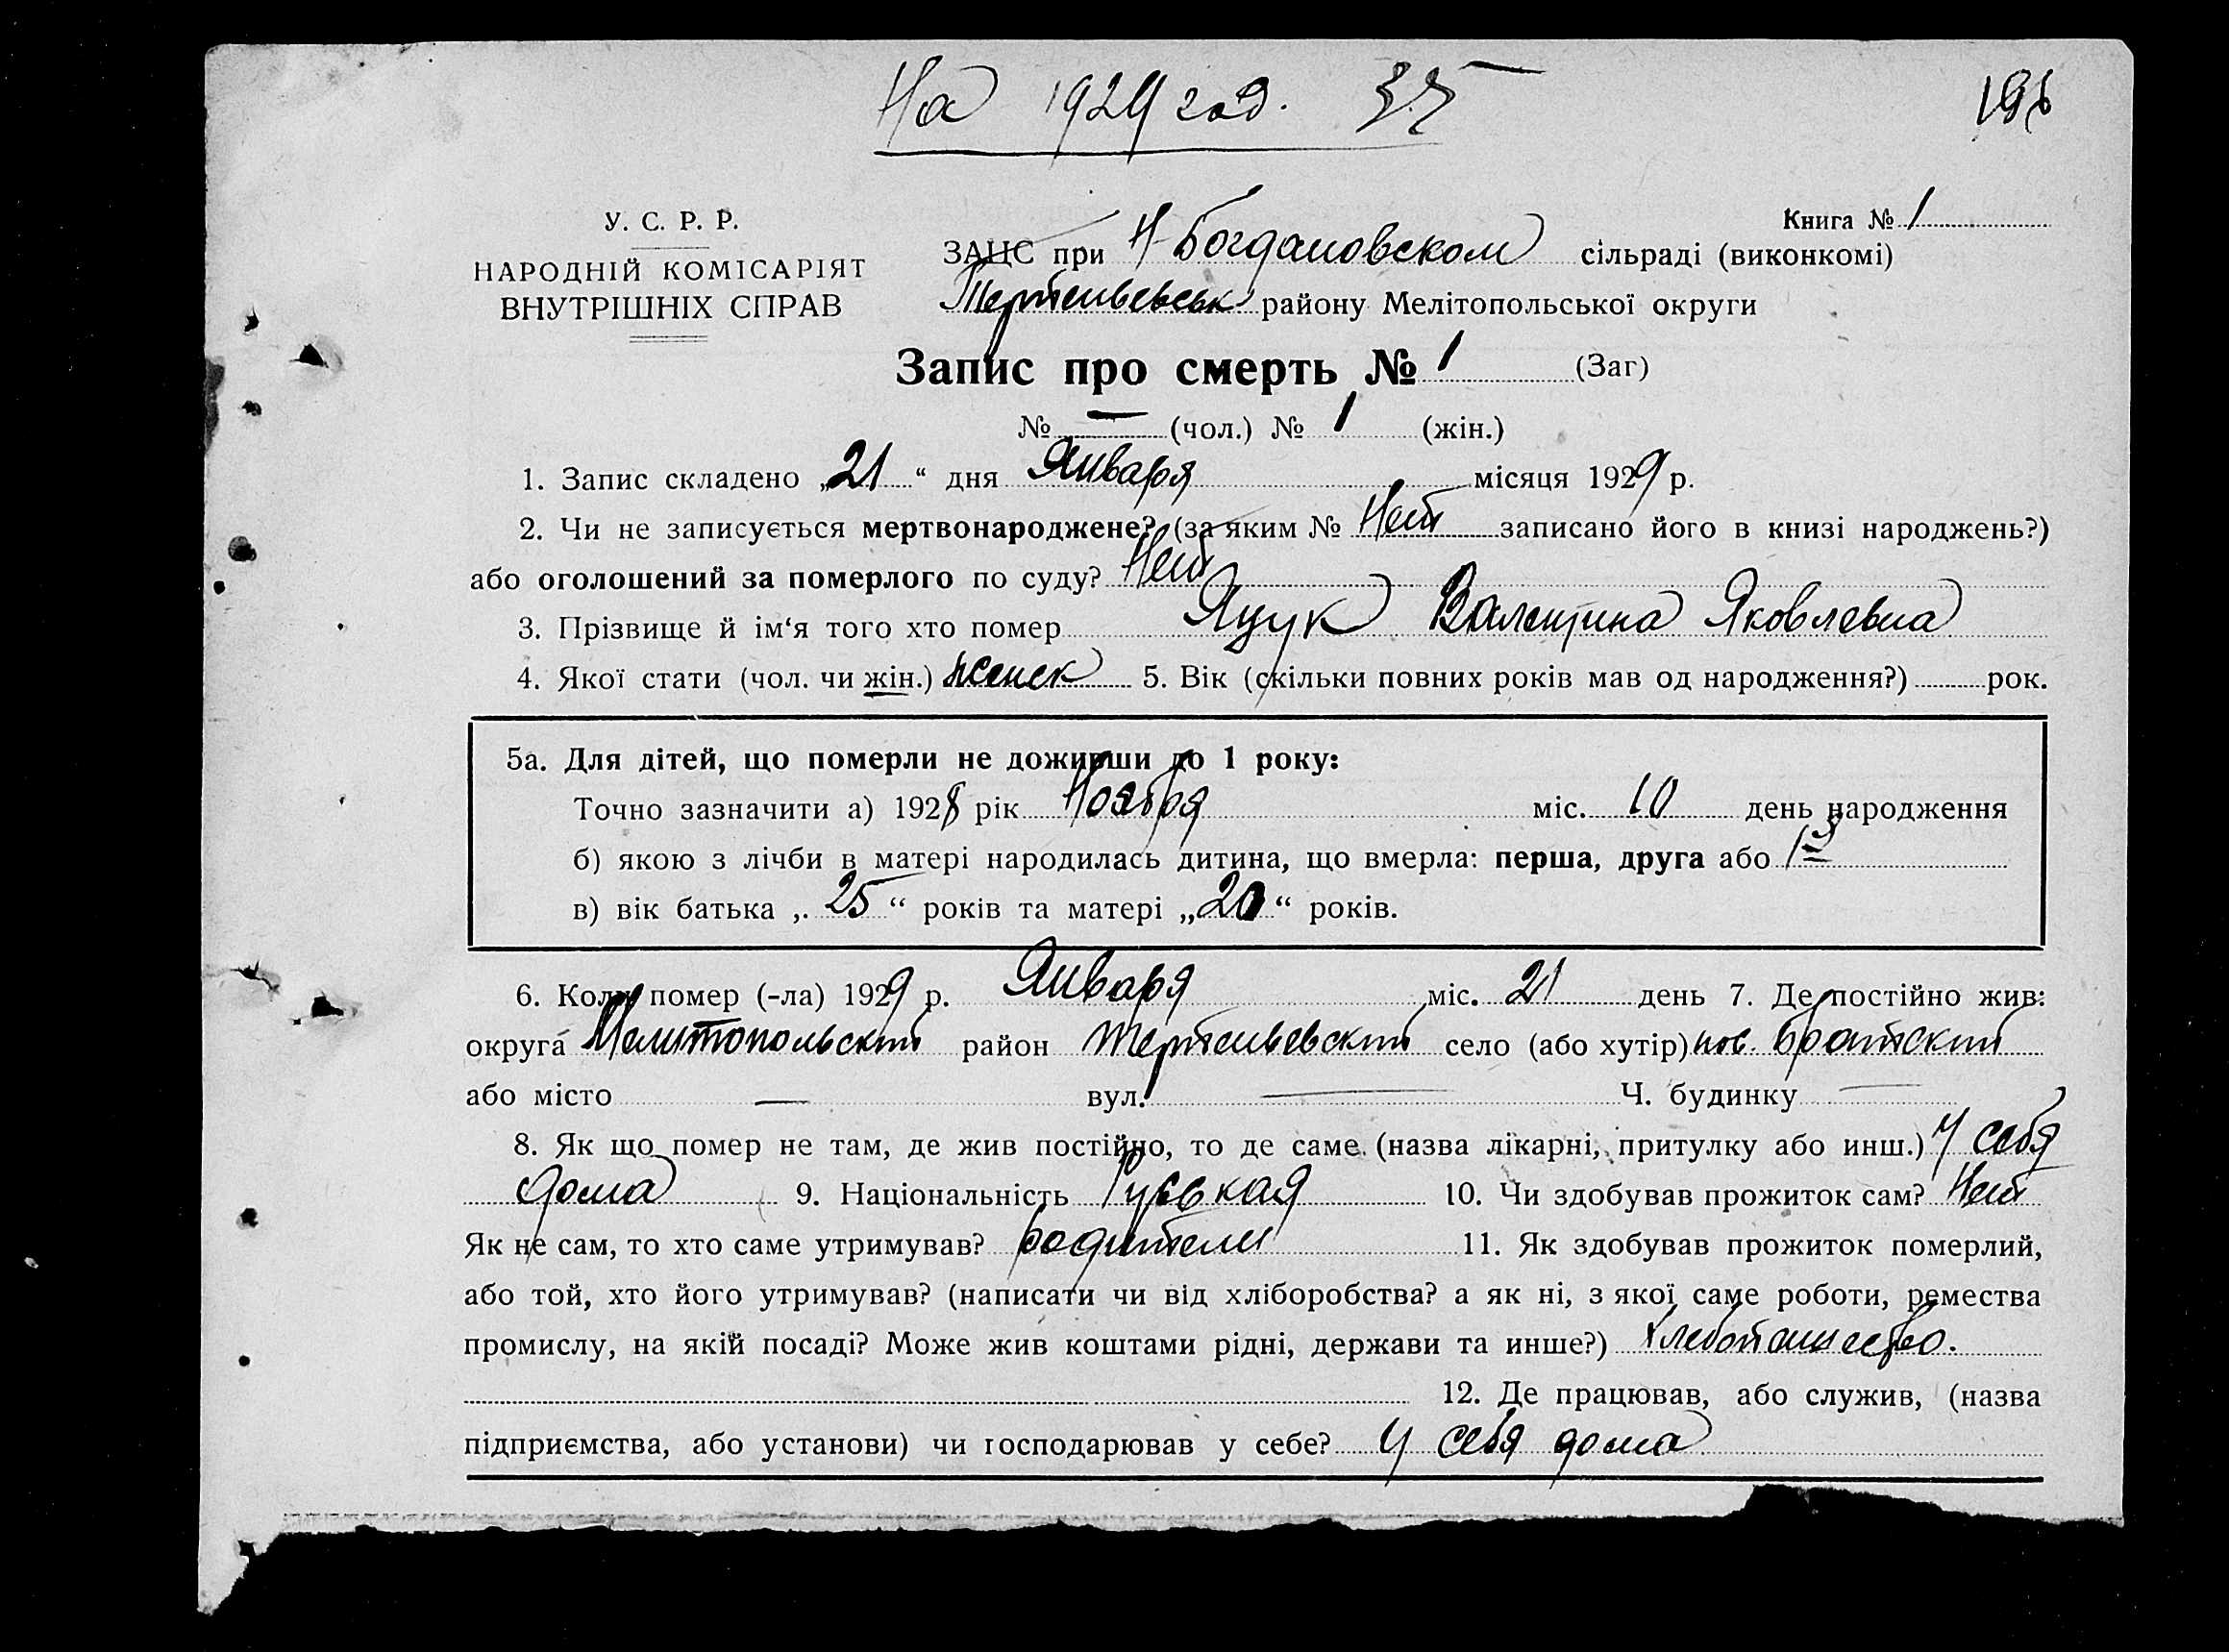 На 1929 год.
196
У. С. Р. Р.
НАРОДНІЙ КОМІСАРІЯТ
ВНУТРІШНІХ СПРАВ
Книга № 1
ЗАЦС при Н-Богдановском сільраді (виконкомі)
району Мелітопольської округи
Запис про смерть № 1 (Заг)
№ — (чол.) № 1 (жін.)
1. Запис складено „21“ дня Января місяця 1929 р.
2. Чи не записується мертвонароджене? (за яким № Нет записано його в книзі народжень?)
або оголошений за померлого по суду? Нет
3. Прізвище й ім‘я того хто помер Яцук Валентина Яковлевна
4. Якої стати (чол. чи жін.) женск 5. Вік (скільки повних років мав од народження?) рок.
5а. Для дітей, що померли не доживши до 1 року:
Точно зазначити а) 1928 рік Ноября міс. 10 день народження
б) якою з лічби в матері народилась дитина, що вмерла: перша, друга або
в) вік батька „25“ років та матері „20“ років.
6. Коли помер (-ла) 1929 р. Января міс. 21 день 7. Де постійно жив:
округа Мелитопольский район село (або хутір) нов. Братский
або місто — вул. — Ч. будинку —
8. Як що помер не там, де жив постійно, то де саме (назва лікарні, притулку або инш.) У себя
дома 9. Національність 10. Чи здобував прожиток сам? Нет
Як не сам, то хто саме утримував? родители 11. Як здобував прожиток померлий,
або той, хто його утримував? (написати чи від хліборобства? а як ні, з якої саме роботи, ремества
промислу, на якій посаді? Може жив коштами рідні, держави та инше?) Хлебопашество.
12. Де працював, або служив, (назва
підприємства, або установи) чи господарював у себе? У себя дома